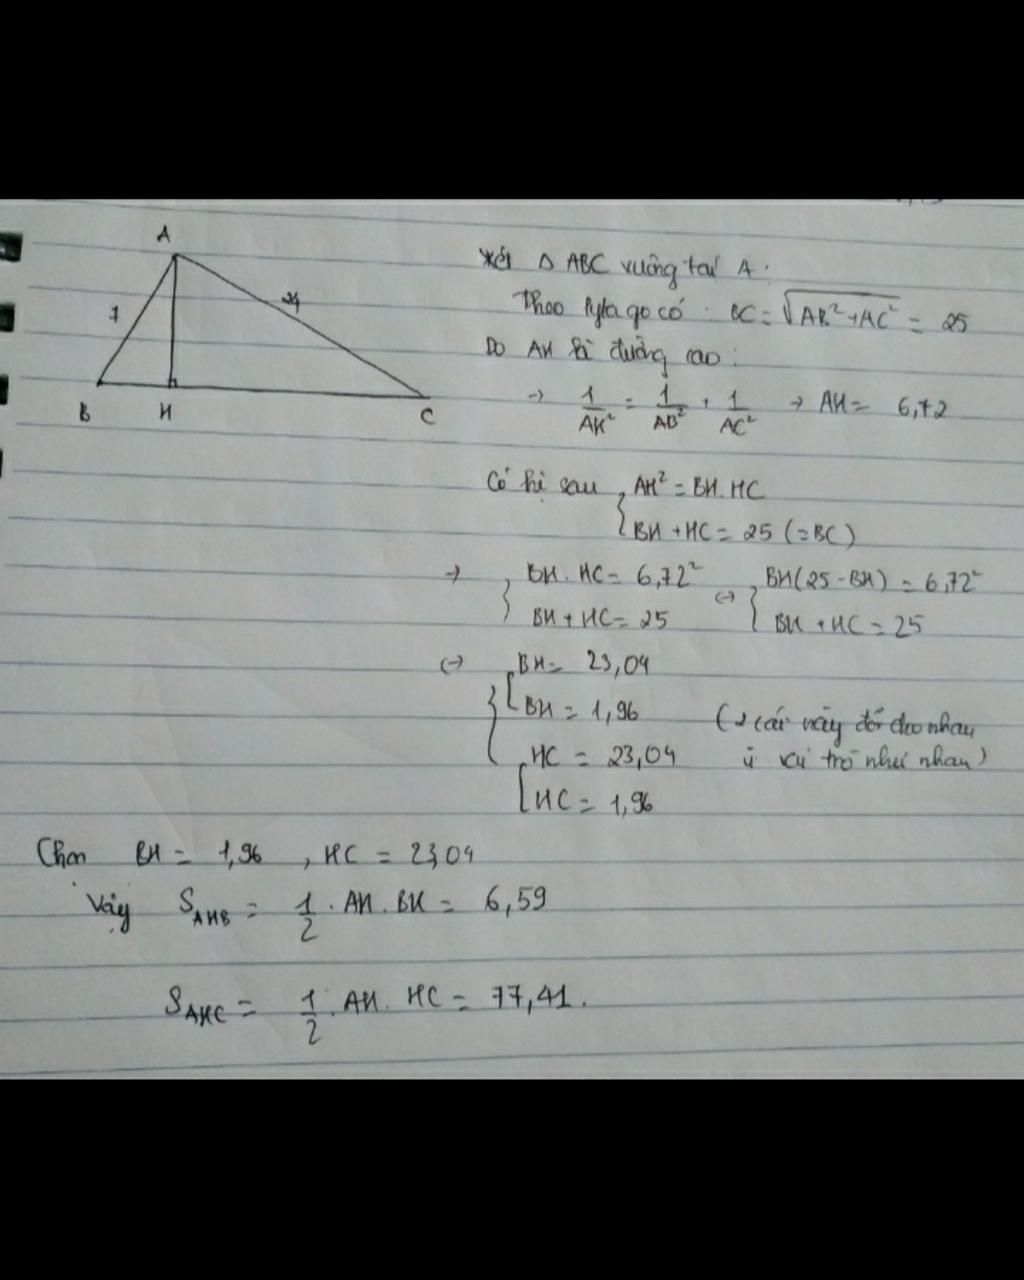 A
7
24
B H C
Xét Δ ABC vuông tại A.
Theo Pytago có: BC = √AB² + AC² = 25
Do AH là đường cao:
→ 1/AH² = 1/AB² + 1/AC² → AH = 6,72
Có hệ sau { AH² = BH.HC
BH + HC = 25 (=BC)
→ { BH.HC = 6,72² ↔ { BH(25 - BH) = 6,72²
BH + HC = 25 BH + HC = 25
↔ { [ BH = 23,04
BH = 1,96 (2 cái này đổi cho nhau
[ HC = 23,04 vì vai trò như nhau)
HC = 1,96
Chọn BH = 1,96 , HC = 23,04
Vậy S_AHB = 1/2 . AH. BH = 6,59
S_AHC = 1/2 . AH. HC = 77,41.